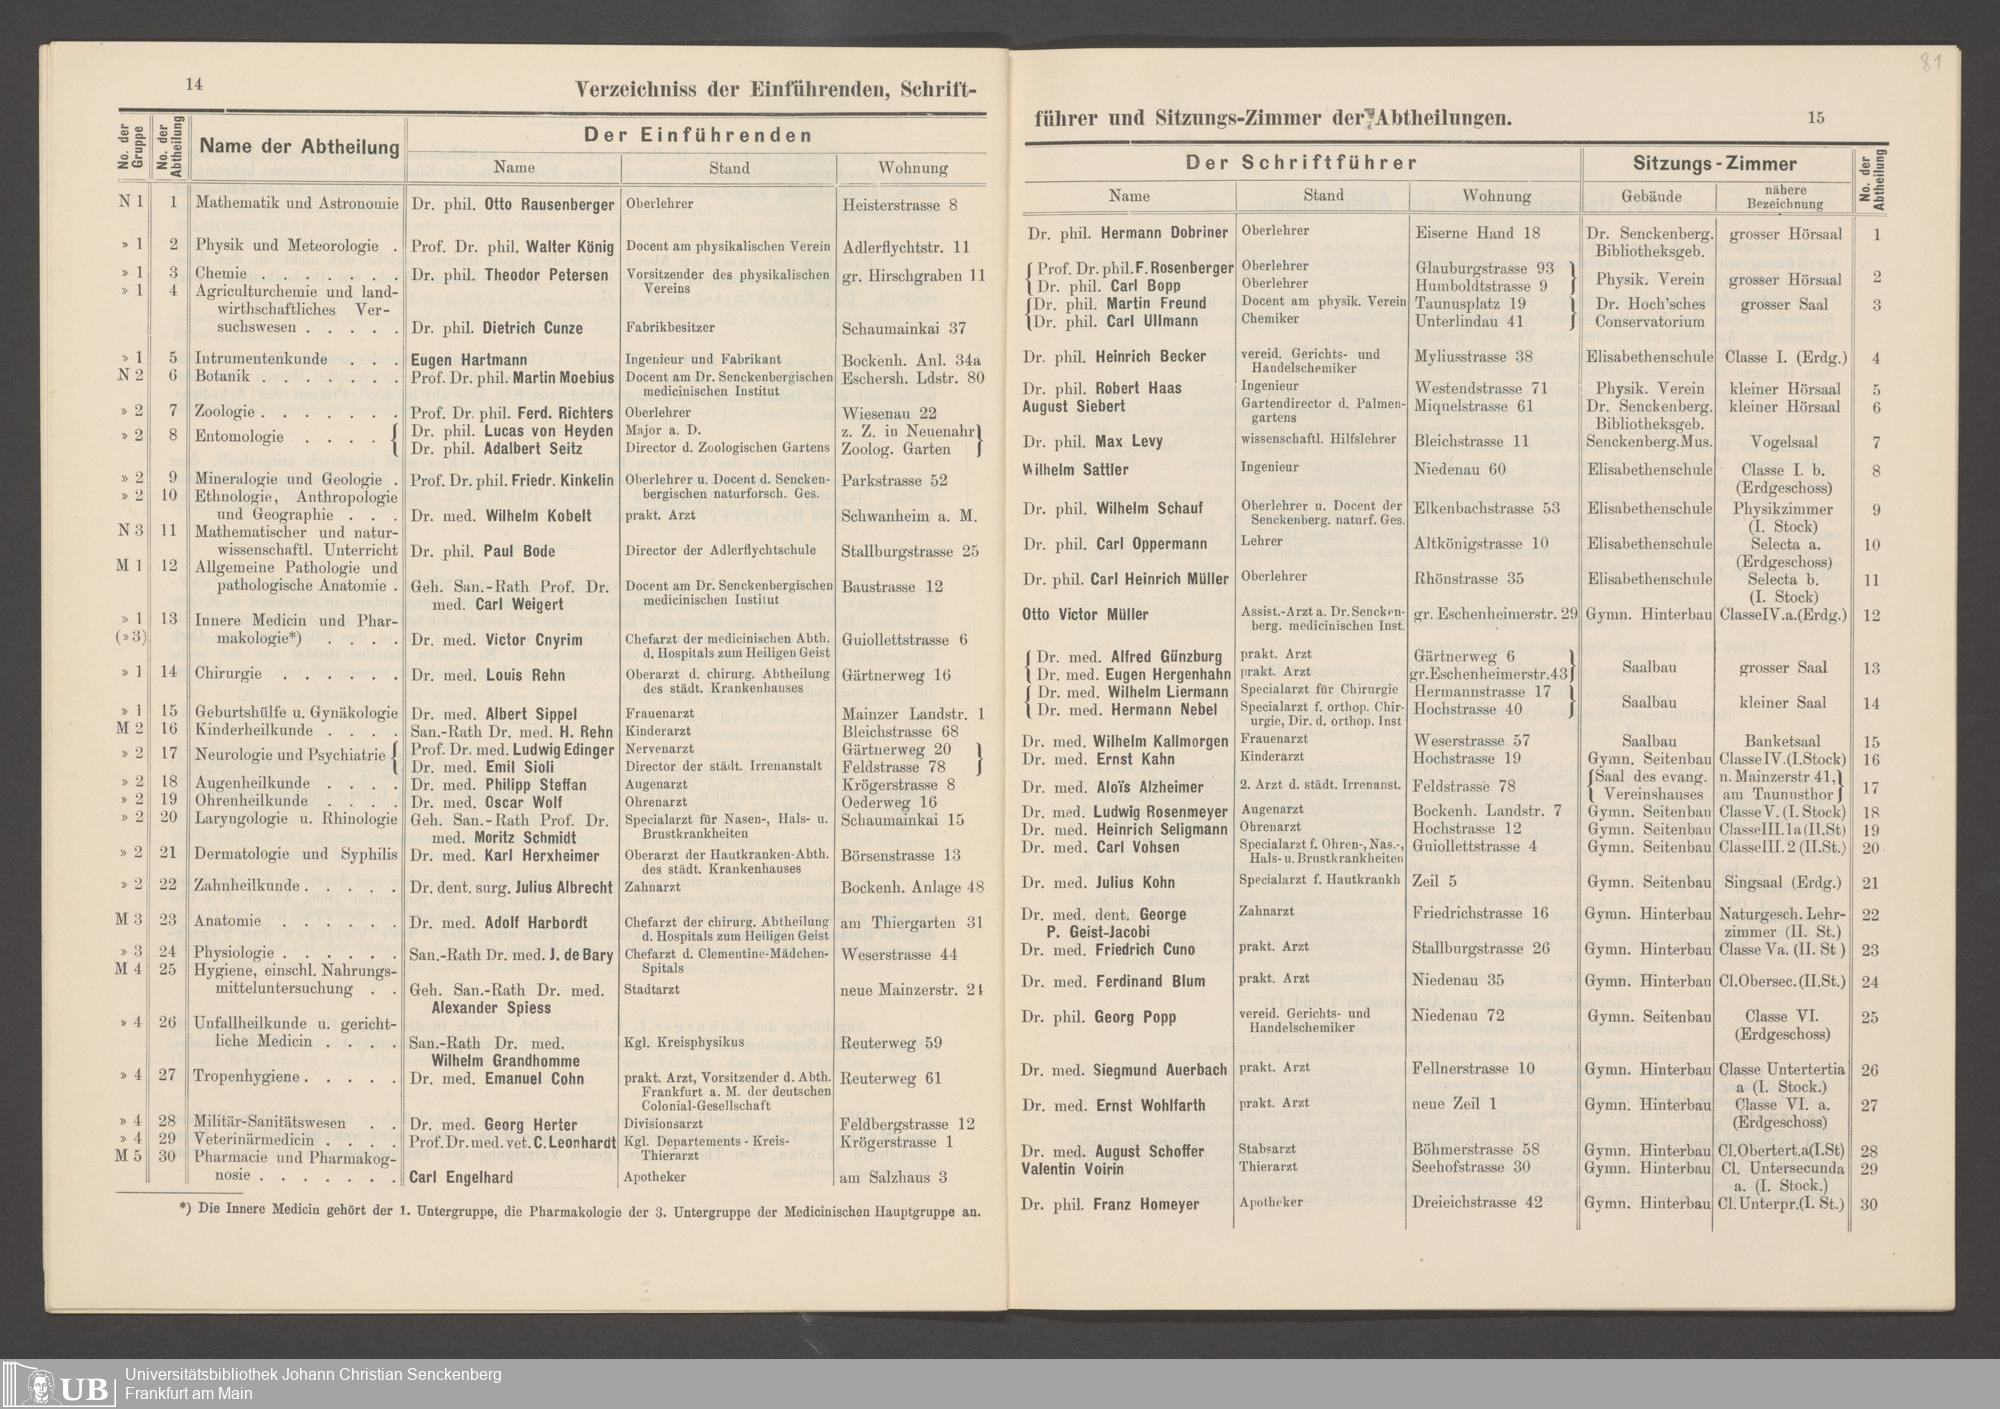 14
Verzeichniss der Einführenden, Schrift-
No. der Gruppe
No. der Abtheilung
Name der Abtheilung
Der Einführenden
Name Stand Wohnung
N 1 1 Mathematik und Astronomie Dr. phil. Otto Rausenberger Oberlehrer Heisterstrasse 8
» 1 2 Physik und Meteorologie . Prof. Dr. phil. Walter König Docent am physikalischen Verein Adlerflychtstr. 11
» 1 3 Chemie . . . . . . . Dr. phil. Theodor Petersen Vorsitzender des physikalischen gr. Hirschgraben 11
Vereins
» 1 4 Agriculturchemie und land-
wirthschaftliches Ver-
suchswesen . . . . . Dr. phil. Dietrich Cunze Fabrikbesitzer Schaumainkai 37
» 1 5 Intrumentenkunde . . . Eugen Hartmann Ingenieur und Fabrikant Bockenh. Anl. 34a
N 2 6 Botanik . . . . . . . Prof. Dr. phil. Martin Moebius Docent am Dr. Senckenbergischen Eschersh. Ldstr. 80
medicinischen Institut
» 2 7 Zoologie . . . . . . . Prof. Dr. phil. Ferd. Richters Oberlehrer Wiesenau 22
» 2 8 Entomologie . . . . { Dr. phil. Lucas von Heyden Major a. D. z. Z. in Neuenahr }
Dr. phil. Adalbert Seitz Director d. Zoologischen Gartens Zoolog. Garten
» 2 9 Mineralogie und Geologie . Prof. Dr. phil. Friedr. Kinkelin Oberlehrer u. Docent d. Sencken- Parkstrasse 52
bergischen naturforsch. Ges.
» 2 10 Ethnologie, Anthropologie
und Geographie . . . Dr. med. Wilhelm Kobelt prakt. Arzt Schwanheim a. M.
N 3 11 Mathematischer und natur-
wissenschaftl. Unterricht Dr. phil. Paul Bode Director der Adlerflychtschule Stallburgstrasse 25
M 1 12 Allgemeine Pathologie und
pathologische Anatomie . Geh. San.-Rath Prof. Dr. Docent am Dr. Senckenbergischen Baustrasse 12
med. Carl Weigert medicinischen Institut
» 1 13 Innere Medicin und Phar-
(» 3) makologie*) . . . . Dr. med. Victor Cnyrim Chefarzt der medicinischen Abth. Guiollettstrasse 6
d. Hospitals zum Heiligen Geist
» 1 14 Chirurgie . . . . . . Dr. med. Louis Rehn Oberarzt d. chirurg. Abtheilung Gärtnerweg 16
des städt. Krankenhauses
» 1 15 Geburtshülfe u. Gynäkologie Dr. med. Albert Sippel Frauenarzt Mainzer Landstr. 1
M 2 16 Kinderheilkunde . . . . San.-Rath Dr. med. H. Rehn Kinderarzt Bleichstrasse 68
» 2 17 Neurologie und Psychiatrie { Prof. Dr. med. Ludwig Edinger Nervenarzt Gärtnerweg 20 }
Dr. med. Emil Sioli Director der städt. Irrenanstalt Feldstrasse 78
» 2 18 Augenheilkunde . . . . Dr. med. Philipp Steffan Augenarzt Krögerstrasse 8
» 2 19 Ohrenheilkunde . . . . Dr. med. Oscar Wolf Ohrenarzt Oederweg 16
» 2 20 Laryngologie u. Rhinologie Geh. San.-Rath Prof. Dr. Specialarzt für Nasen-, Hals- u. Schaumainkai 15
med. Moritz Schmidt Brustkrankheiten
» 2 21 Dermatologie und Syphilis Dr. med. Karl Herxheimer Oberarzt der Hautkranken-Abth. Börsenstrasse 13
des städt. Krankenhauses
» 2 22 Zahnheilkunde . . . . . Dr. dent. surg. Julius Albrecht Zahnarzt Bockenh. Anlage 48
M 3 23 Anatomie . . . . . . Dr. med. Adolf Harbordt Chefarzt der chirurg. Abtheilung am Thiergarten 31
d. Hospitals zum Heiligen Geist
» 3 24 Physiologie . . . . . . San.-Rath Dr. med. J. de Bary Chefarzt d. Clementine-Mädchen- Weserstrasse 44
Spitals
M 4 25 Hygiene, einschl. Nahrungs-
mitteluntersuchung . . Geh. San.-Rath Dr. med. Stadtarzt neue Mainzerstr. 24
Alexander Spiess
» 4 26 Unfallheilkunde u. gericht-
liche Medicin . . . . San.-Rath Dr. med. Kgl. Kreisphysikus Reuterweg 59
Wilhelm Grandhomme
» 4 27 Tropenhygiene . . . . . Dr. med. Emanuel Cohn prakt. Arzt, Vorsitzender d. Abth. Reuterweg 61
Frankfurt a. M. der deutschen
Colonial-Gesellschaft
» 4 28 Militär-Sanitätswesen . . Dr. med. Georg Herter Divisionsarzt Feldbergstrasse 12
» 4 29 Veterinärmedicin . . . . Prof. Dr. med. vet. C. Leonhardt Kgl. Departements-Kreis- Krögerstrasse 1
Thierarzt
M 5 30 Pharmacie und Pharmakog-
nosie . . . . . . . Carl Engelhard Apotheker am Salzhaus 3
*) Die Innere Medicin gehört der 1. Untergruppe, die Pharmakologie der 3. Untergruppe der Medicinischen Hauptgruppe an.
81
führer und Sitzungs-Zimmer der Abtheilungen.
15
Der Schriftführer
Sitzungs-Zimmer
No. der Abtheilung
Name Stand Wohnung Gebäude nähere Bezeichnung
Dr. phil. Hermann Dobriner Oberlehrer Eiserne Hand 18 Dr. Senckenberg. grosser Hörsaal 1
Bibliotheksgeb.
{ Prof. Dr. phil. F. Rosenberger Oberlehrer Glauburgstrasse 93 } Physik. Verein grosser Hörsaal 2
Dr. phil. Carl Bopp Oberlehrer Humboldtstrasse 9
{ Dr. phil. Martin Freund Docent am physik. Verein Taunusplatz 19 } Dr. Hoch'sches grosser Saal 3
Dr. phil. Carl Ullmann Chemiker Unterlindau 41 Conservatorium
Dr. phil. Heinrich Becker vereid. Gerichts- und Myliusstrasse 38 Elisabethenschule Classe I. (Erdg.) 4
Handelschemiker
Dr. phil. Robert Haas Ingenieur Westendstrasse 71 Physik. Verein kleiner Hörsaal 5
August Siebert Gartendirector d. Palmen- Miquelstrasse 61 Dr. Senckenberg. kleiner Hörsaal 6
gartens Bibliotheksgeb.
Dr. phil. Max Levy wissenschaftl. Hilfslehrer Bleichstrasse 11 Senckenberg. Mus. Vogelsaal 7
Wilhelm Sattler Ingenieur Niedenau 60 Elisabethenschule Classe I. b. 8
(Erdgeschoss)
Dr. phil. Wilhelm Schauf Oberlehrer u. Docent der Elkenbachstrasse 53 Elisabethenschule Physikzimmer 9
Senckenberg. naturf. Ges. (I. Stock)
Dr. phil. Carl Oppermann Lehrer Altkönigstrasse 10 Elisabethenschule Selecta a. 10
(Erdgeschoss)
Dr. phil. Carl Heinrich Müller Oberlehrer Rhönstrasse 35 Elisabethenschule Selecta b. 11
(I. Stock)
Otto Victor Müller Assist.-Arzt a. Dr. Sencken- gr. Eschenheimerstr. 29 Gymn. Hinterbau Classe IV. a. (Erdg.) 12
berg. medicinischen Inst.
{ Dr. med. Alfred Günzburg prakt. Arzt Gärtnerweg 6 } Saalbau grosser Saal 13
Dr. med. Eugen Hergenhahn prakt. Arzt gr. Eschenheimerstr. 43
{ Dr. med. Wilhelm Liermann Specialarzt für Chirurgie Hermannstrasse 17 } Saalbau kleiner Saal 14
Dr. med. Hermann Nebel Specialarzt f. orthop. Chir- Hochstrasse 40
urgie, Dir. d. orthop. Inst
Dr. med. Wilhelm Kallmorgen Frauenarzt Weserstrasse 57 Saalbau Banketsaal 15
Dr. med. Ernst Kahn Kinderarzt Hochstrasse 19 Gymn. Seitenbau Classe IV. (I. Stock) 16
Dr. med. Aloïs Alzheimer 2. Arzt d. städt. Irrenanst. Feldstrasse 78 { Saal des evang. n. Mainzerstr 41, } 17
Vereinshauses am Taunusthor
Dr. med. Ludwig Rosenmeyer Augenarzt Bockenh. Landstr. 7 Gymn. Seitenbau Classe V. (I. Stock) 18
Dr. med. Heinrich Seligmann Ohrenarzt Hochstrasse 12 Gymn. Seitenbau Classe III. 1a (II. St) 19
Dr. med. Carl Vohsen Specialarzt f. Ohren-, Nas.-, Guiollettstrasse 4 Gymn. Seitenbau Classe III. 2 (II. St.) 20
Hals- u. Brustkrankheiten
Dr. med. Julius Kohn Specialarzt f. Hautkrankh Zeil 5 Gymn. Seitenbau Singsaal (Erdg.) 21
Dr. med. dent. George Zahnarzt Friedrichstrasse 16 Gymn. Hinterbau Naturgesch. Lehr- 22
P. Geist-Jacobi zimmer (II. St.)
Dr. med. Friedrich Cuno prakt. Arzt Stallburgstrasse 26 Gymn. Hinterbau Classe Va. (II. St ) 23
Dr. med. Ferdinand Blum prakt. Arzt Niedenau 35 Gymn. Hinterbau Cl. Obersec. (II. St.) 24
Dr. phil. Georg Popp vereid. Gerichts- und Niedenau 72 Gymn. Seitenbau Classe VI. 25
Handelschemiker (Erdgeschoss)
Dr. med. Siegmund Auerbach prakt. Arzt Fellnerstrasse 10 Gymn. Hinterbau Classe Untertertia 26
a (I. Stock.)
Dr. med. Ernst Wohlfarth prakt. Arzt neue Zeil 1 Gymn. Hinterbau Classe VI. a. 27
(Erdgeschoss)
Dr. med. August Schoffer Stabsarzt Böhmerstrasse 58 Gymn. Hinterbau Cl. Obertert. a (I. St) 28
Valentin Voirin Thierarzt Seehofstrasse 30 Gymn. Hinterbau Cl. Untersecunda 29
a. (I. Stock.)
Dr. phil. Franz Homeyer Apotheker Dreieichstrasse 42 Gymn. Hinterbau Cl. Unterpr. (I. St.) 30
UB
Universitätsbibliothek Johann Christian Senckenberg
Frankfurt am Main